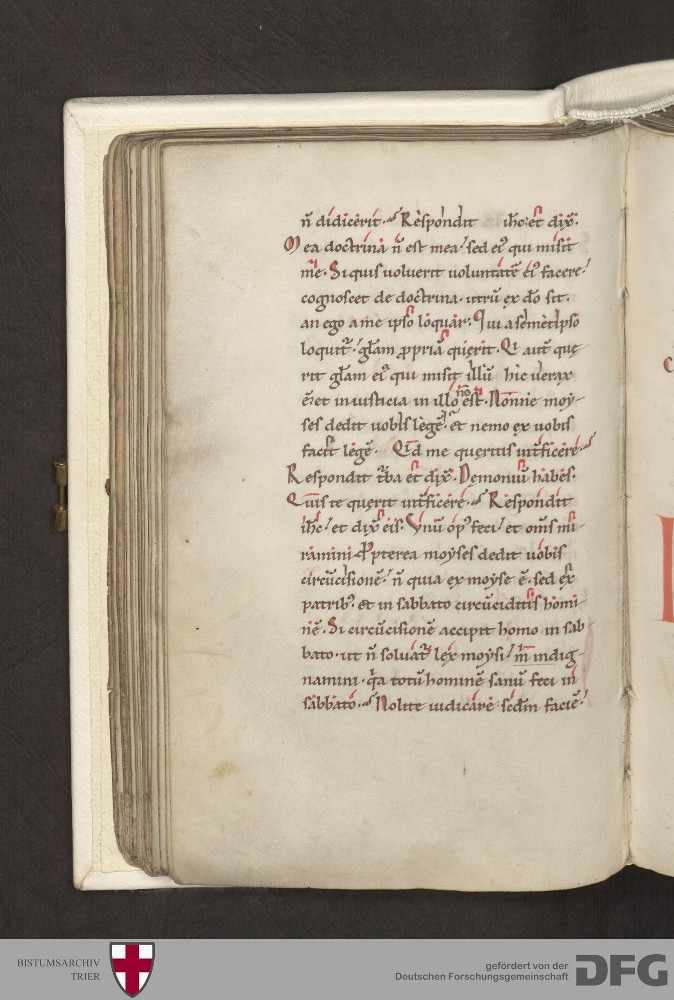 n̄ didicerit. Respondit ih̄c: et dix̄.
Mea doctrina n̄ est mea / sed ei᷒ qui misit
me. Si quis uoluerit uoluntatē ei᷒ facere /
cognoscet de doctrina. utrū ex dō sit.
an ego a me ipso loquar. Qui a semetipso
loquit᷑ / gl̄am ꝓpriā querit. Qi aut̄ que-
rit gl̄am ei᷒ qui misit illū hic uerax
ē: et iniusticia in illo n̄o est. Nonne moy-
ses dedit uobis legē / et nemo ex uobis
facit legē. Qid me queritis int̄ficere.
Respondit t̄ba et dix̄. Demoniū habes.
Quis te querit int̄ficere. Respondit
ih̄c / et dix̄ eis. Vnū op᷒ feci / et om̄s mi-
ramini. Ppterea moyses dedit uobis
circūcisionē / n̄ quia ex moyse ē. sed ex
patrib᷒. et in sabbato circūciditis homi-
nē. Si circūcisionē accipit homo in sab-
bato. ut n̄ soluat᷑ lex moysi / m̄ indig-
namini. qa totū hominē sanū feci in
sabbato. Nolite iudicare scdm faciē /
BISTUMSARCHIV
TRIER
gefördert von der
Deutschen Forschungsgemeinschaft
DFG